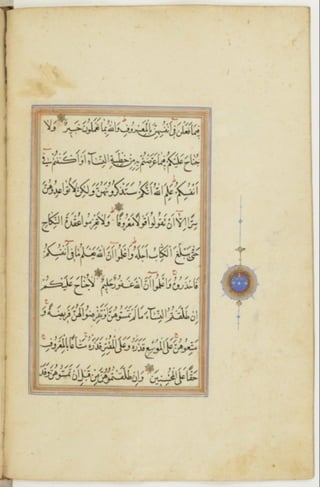 فيما فعلن في أنفسهن بالمعروف والله بما تعملون خبير ولا
جناح عليكم فيما عرضتم به من خطبة النساء أو أكننتم في
أنفسكم علم الله أنكم ستذكرونهن ولكن لا تواعدوهن
سرا إلا أن تقولوا قولا معروفا ولا تعزموا عقدة النكاح
حتى يبلغ الكتاب أجله واعلموا أن الله يعلم ما في أنفسكم
فاحذروه واعلموا أن الله غفور حليم لا جناح عليكم
إن طلقتم النساء ما لم تمسوهن أو تفرضوا لهن فريضة و
متعوهن على الموسع قدره وعلى المقتر قدره متاعا بالمعروف
حقا على المحسنين وإن طلقتموهن من قبل أن تمسوهن وقد